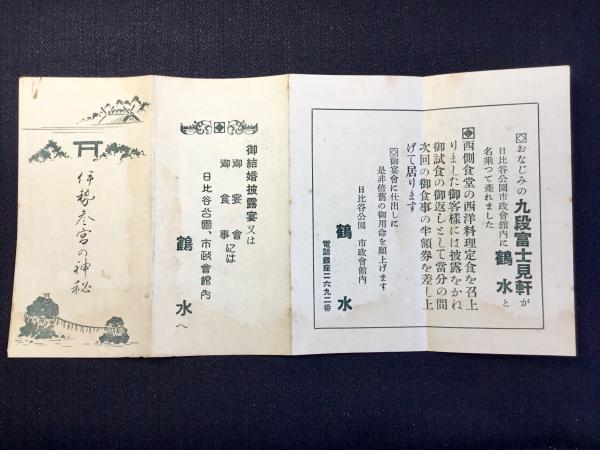 ◇おなじみの九段富士見軒が
日比谷公園市政會館内に鶴水と
名乗つて產れました
◈西側食堂の西洋料理定食を召上
りました御客樣には披露をかね
御試食の御返しとして當分の間
次回の御食事の半額券を差し上
げて居ります
◇御宴會に仕出しに
是非倍舊の御用命を願上げます
日比谷公園 市政會館内
鶴水
電話銀座二六九二番
御結婚披露宴又は
御宴會
御食事には
日比谷公園、市政會館内
鶴水へ
伊勢参宮の神秘